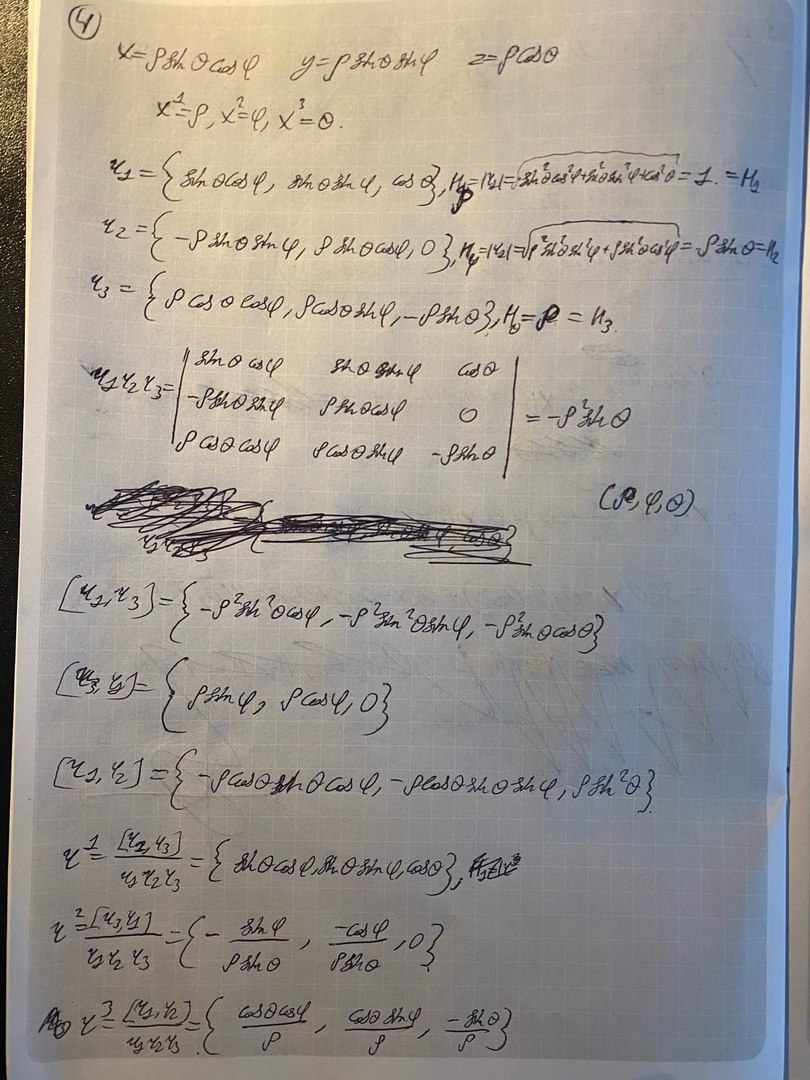 ④
x=ρ sinθ cosφ y=ρ sinθ sinφ z=ρ cosθ
x¹=ρ, x²=φ, x³=θ.
r₁={sinθ cosφ, sinθ sinφ, cosθ}, H_ρ=|r₁|=√(sin²θcos²φ+sin²θsin²φ+cos²θ)=1.=H₁
r₂={-ρ sinθ sinφ, ρ sinθ cosφ, 0}, H_φ=|r₂|=√(ρ²sin²θsin²φ+ρ²sin²θcos²φ)=ρ sinθ=H₂
r₃={ρ cosθ cosφ, ρ cosθ sinφ, -ρ sinθ}, H_θ=ρ=H₃.
r₁r₂r₃=| sinθ cosφ sinθ sinφ cosθ |
| -ρ sinθ sinφ ρ sinθ cosφ 0 | =-ρ² sinθ
| ρ cosθ cosφ ρ cosθ sinφ -ρ sinθ |
(ρ, φ, θ)
[r₂, r₃]={-ρ² sin²θ cosφ, -ρ² sin²θ sinφ, -ρ² sinθ cosθ}
[r₃, r₁]={ρ sinφ, ρ cosφ, 0}
[r₁, r₂]={-ρ cosθ sinθ cosφ, -ρ cosθ sinθ sinφ, ρ sin²θ}
r¹=[r₂, r₃]/r₁r₂r₃={sinθ cosφ, sinθ sinφ, cosθ},
r²=[r₃, r₁]/r₁r₂r₃={-sinφ/ρ sinθ, -cosφ/ρ sinθ, 0}
r³=[r₁, r₂]/r₁r₂r₃={cosθ cosφ/ρ, cosθ sinφ/ρ, -sinθ/ρ}